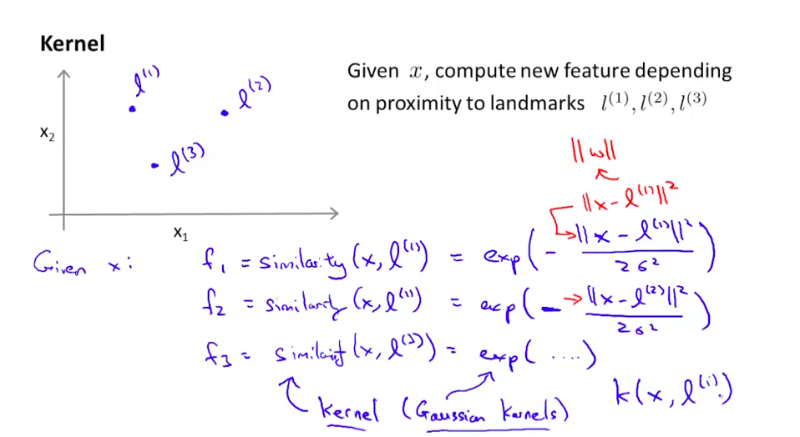 Kernel
Given x, compute new feature depending
on proximity to landmarks l⁽¹⁾, l⁽²⁾, l⁽³⁾
l⁽¹⁾
l⁽²⁾
l⁽³⁾
x₂
x₁
||w||
||x - l⁽¹⁾||²
Given x: f₁ = similarity (x, l⁽¹⁾) = exp(- ||x - l⁽¹⁾||² / 2σ²)
f₂ = similarity (x, l⁽²⁾) = exp(- ||x - l⁽²⁾||² / 2σ²)
f₃ = similarity (x, l⁽³⁾) = exp( ....)
kernel (Gaussian kernels)
k(x, l⁽ⁱ⁾)